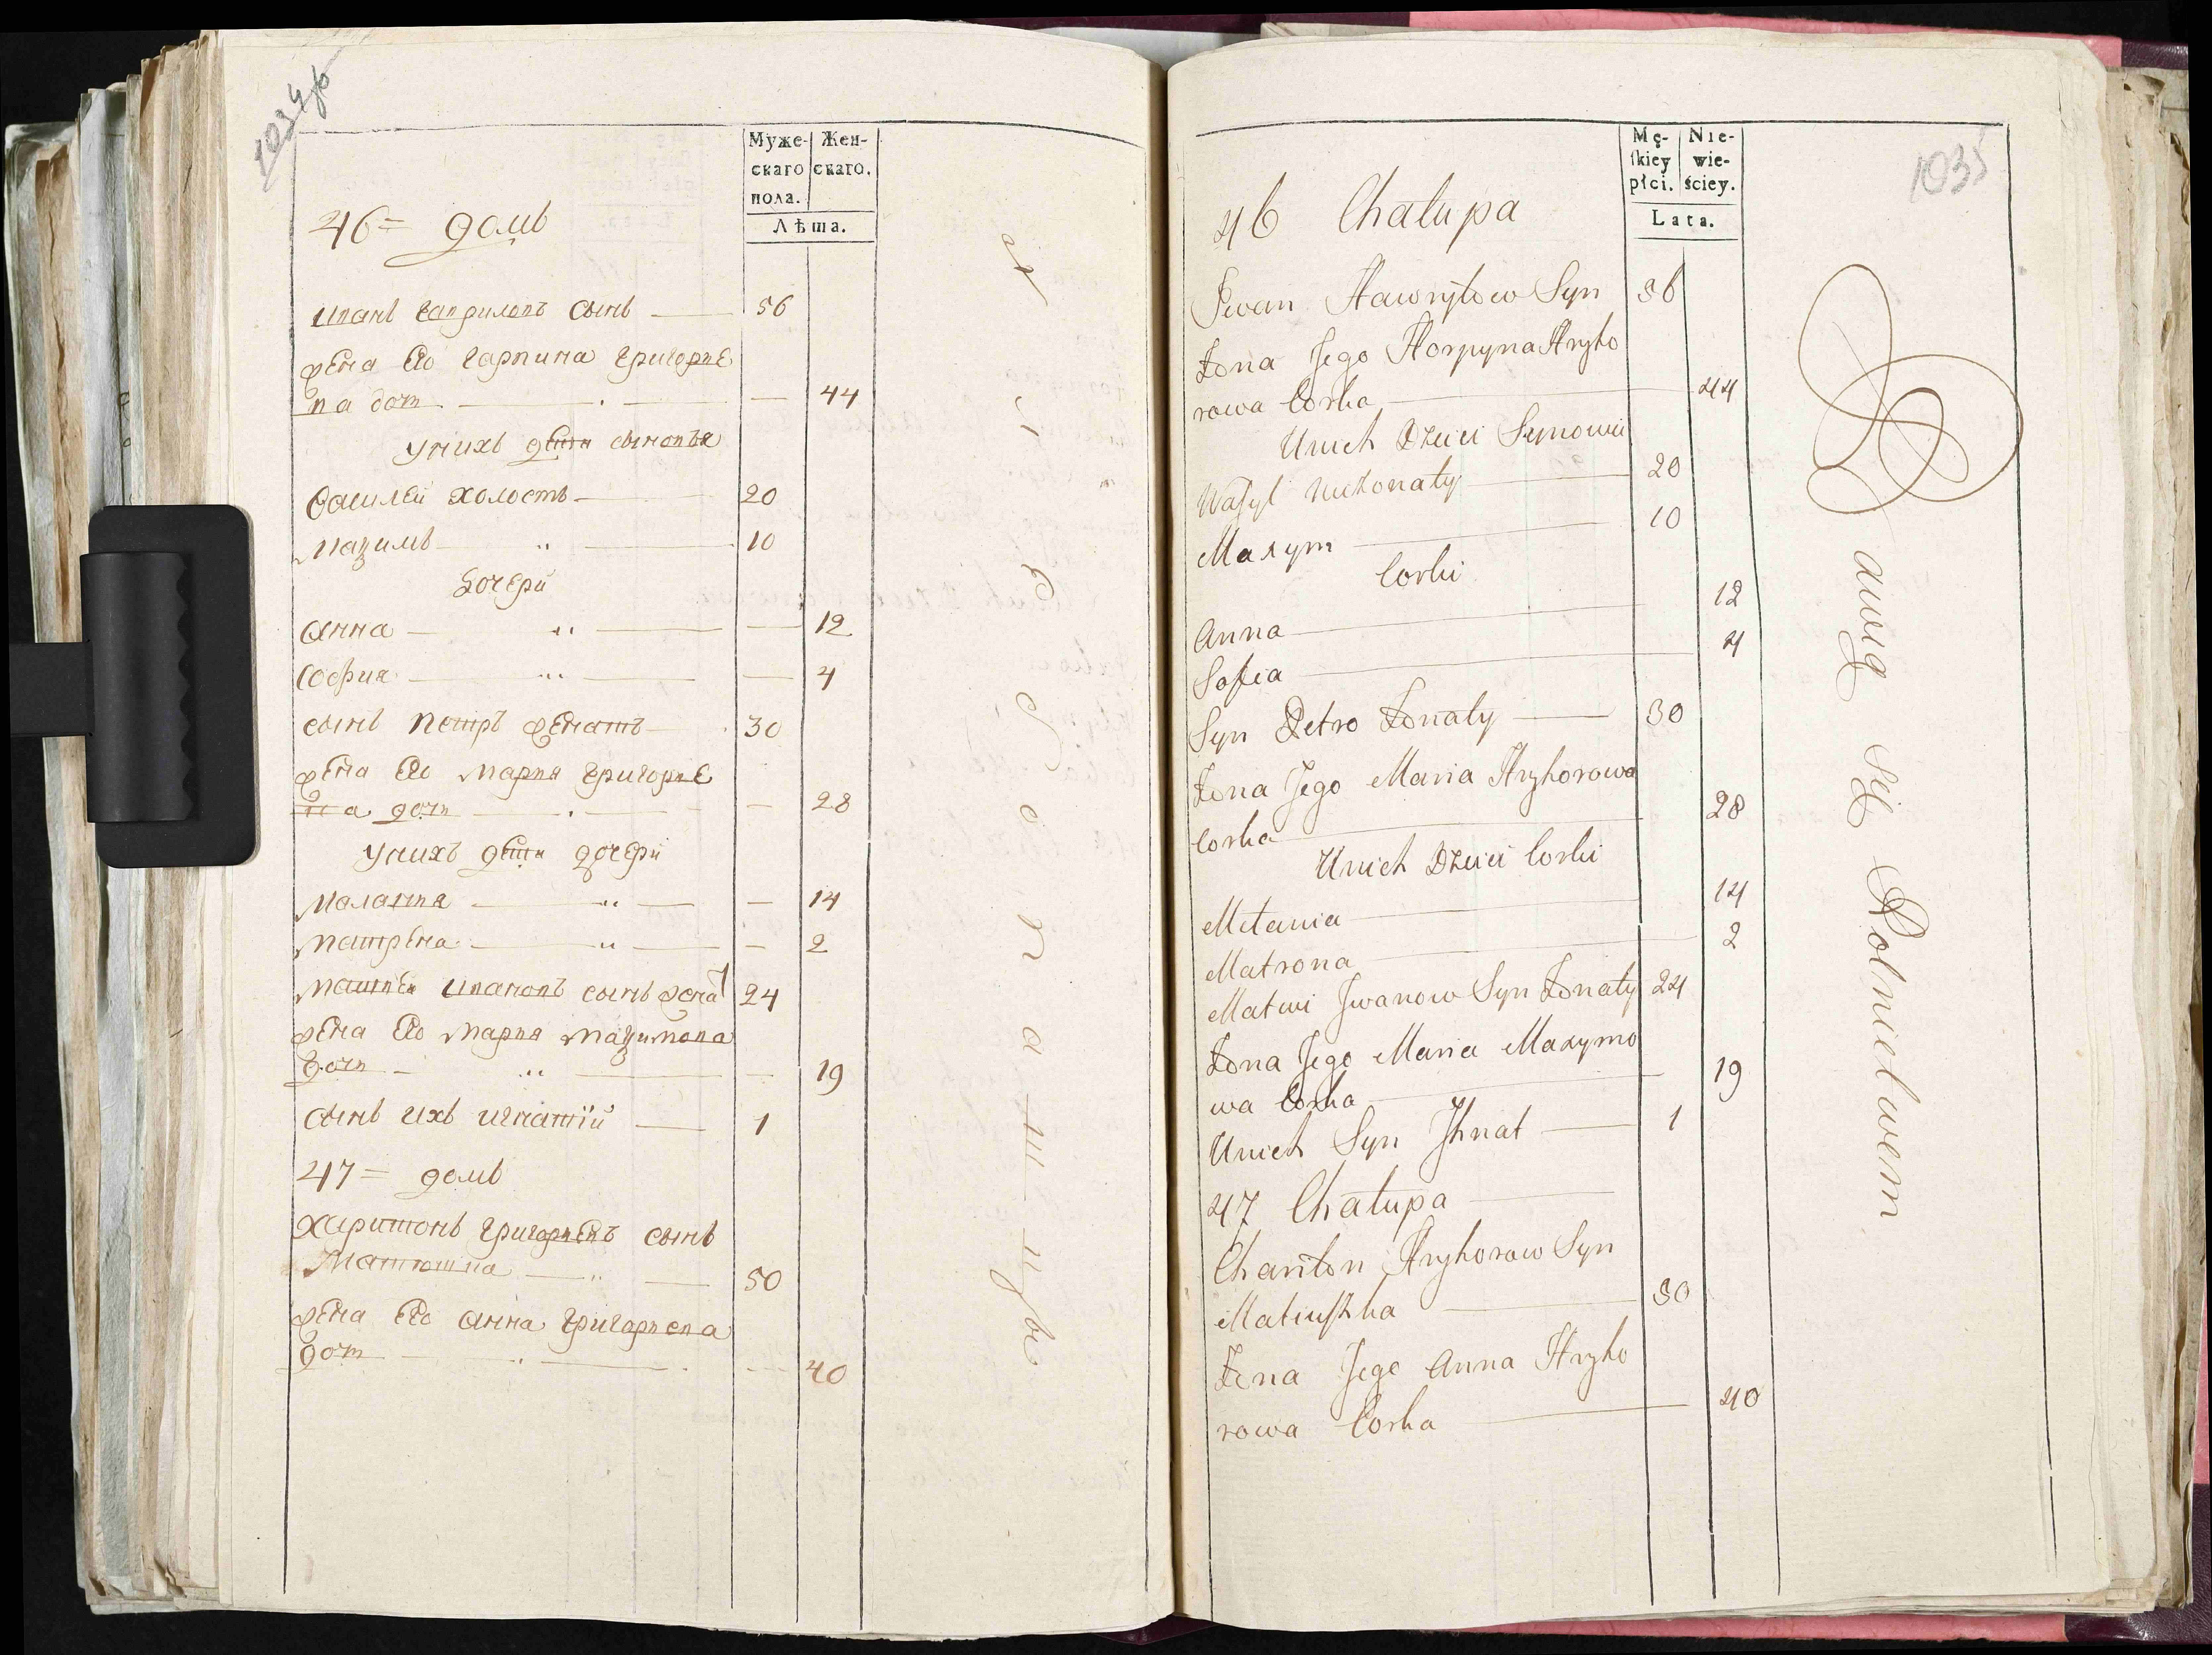 1034об
Муже- Жен-
скаго скаго.
пола.
Лѣта.
46= домъ
иванъ гавриловъ сынъ — 56
жена его гарпина григорие
ва доч — — 44
у нихъ дети сыновья
василей холостъ — 20
мазимъ — 10
дочери
анна — — 12
софия — — 4
сынъ петръ женатъ — 30
жена его мария григорие
ва доч — — 28
у нихъ дети дочери
малания — — 14
матрена — — 2
матвей ивановъ сынъ женат 24
жена его мария мазимова
доч — — 19
сынъ ихъ игнатий — 1
47= домъ
харитонъ григориевъ сынъ
матюшка — 50
жена его анна григориева
доч — — 40
1035
Mę- Nie-
skiey wie-
płci. ściey.
Lata.
46 Chałupa
Iwan Hawryłow Syn 56
Żona Jego Horpyna Hryho
rowa Corka — 44
U nich Dzieci Synowie
Wasyl nieżonaty — 20
Maxym — 10
Corki
Anna — 12
Sofia — 4
Syn Petro Żonaty — 30
Żona Jego Maria Hryhorowa
Corka — 28
U nich Dzieci Corki
Melania — 14
Matrona — 2
Matwi Jwanow Syn Żonaty 24
Żona Jego Maria Maxymo
wa Corka — 19
U nich Syn Jhnat — 1
47 Chałupa —
Chariton Hryhorow Syn
Matiuszka — 50
Żona Jego Anna Hryho
rowa Corka — 40
awią się Rolnictwem